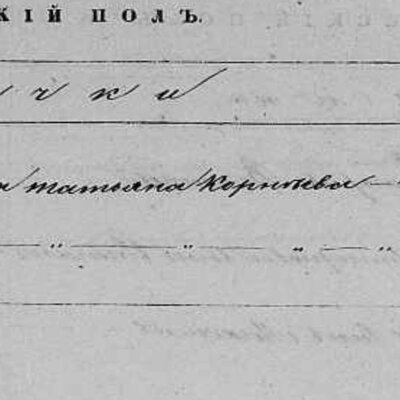 КІЙ ПОЛЪ.
чки
а татьяна Корнѣева —
— " — " — " — "